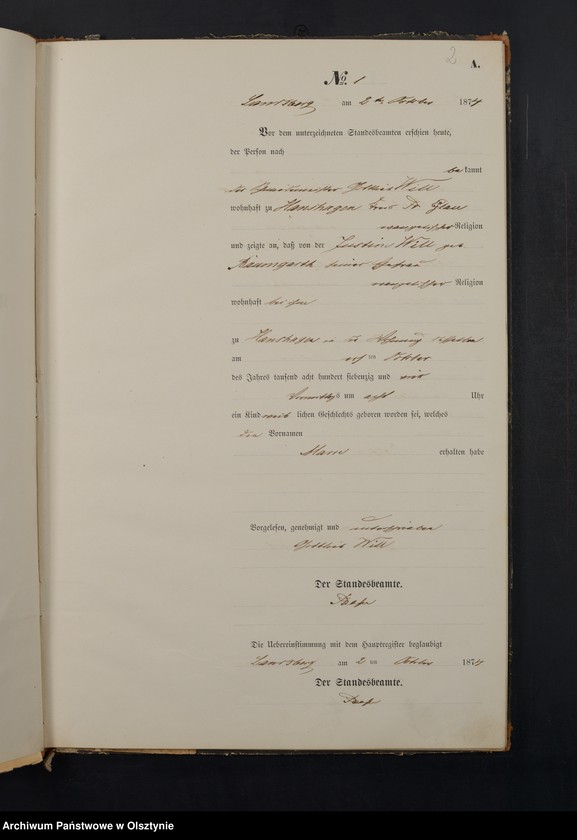 2
A.
No. 1
Landsberg am 2ten Oktober 1874
Vor dem unterzeichneten Standesbeamten erschien heute,
der Person nach
bekannt
der Gottlieb Will
wohnhaft zu Hanshagen Kreis Pr Eylau
evangelischer Religion
und zeigte an, daß von der Justine Will geb
Baumgarth seiner Ehefrau
evangelischer Religion
wohnhaft bei ihm
zu Hanshagen in
am ersten Oktober
des Jahres tausend acht hundert siebenzig und vier
Vormittags um acht Uhr
ein Kind weiblichen Geschlechts geboren worden sei, welches
den Vornamen
Marie erhalten habe
Vorgelesen, genehmigt und unterschrieben
Gottlieb Will
Der Standesbeamte.
Die Uebereinstimmung mit dem Hauptregister beglaubigt
Landsberg am 2 ten Oktober 1874
Der Standesbeamte.
Archiwum Państwowe w Olsztynie